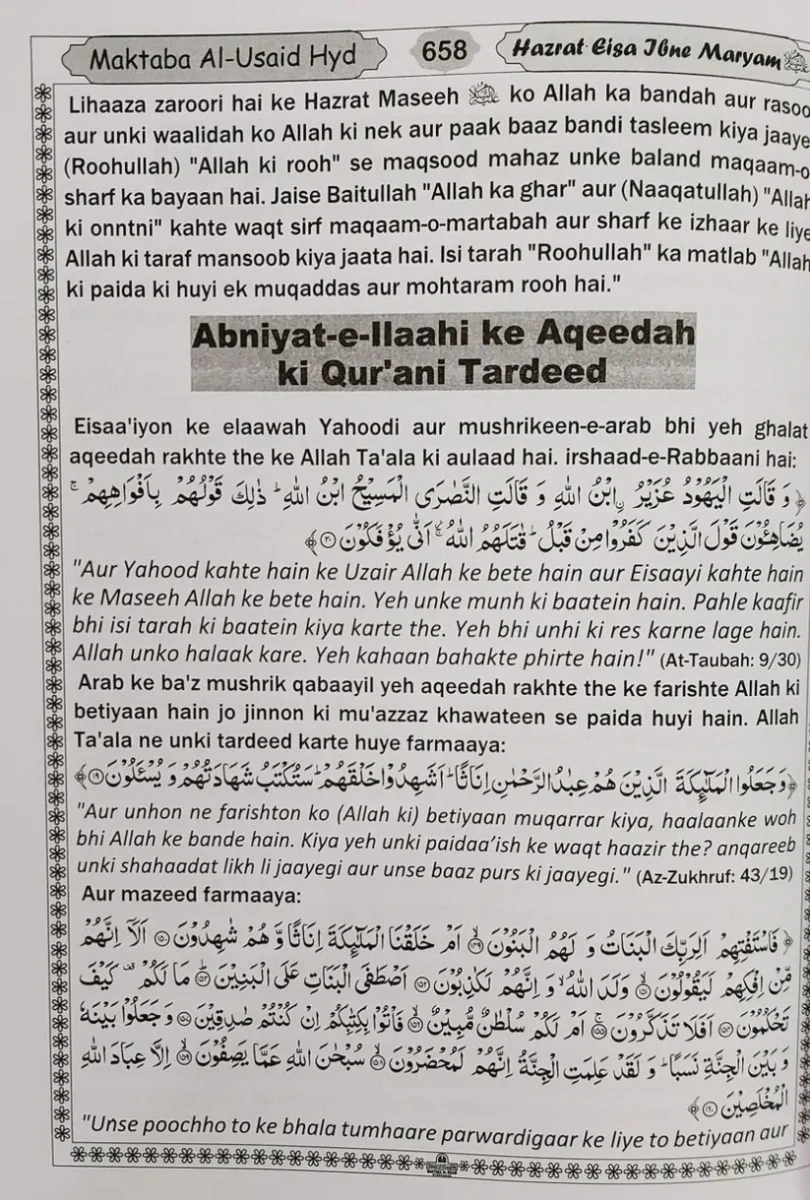 Maktaba Al-Usaid Hyd
658
Hazrat Eisa Ibne Maryam
Lihaaza zaroori hai ke Hazrat Maseeh ﷺ ko Allah ka bandah aur rasoo
aur unki waalidah ko Allah ki nek aur paak baaz bandi tasleem kiya jaaye
(Roohullah) "Allah ki rooh" se maqsood mahaz unke baland maqaam-o
sharf ka bayaan hai. Jaise Baitullah "Allah ka ghar" aur (Naaqatullah) "Allah
ki onntni" kahte waqt sirf maqaam-o-martabah aur sharf ke izhaar ke liye
Allah ki taraf mansoob kiya jaata hai. Isi tarah "Roohullah" ka matlab "Allah
ki paida ki huyi ek muqaddas aur mohtaram rooh hai."
Abniyat-e-Ilaahi ke Aqeedah
ki Qur'ani Tardeed
Eisaa'iyon ke elaawah Yahoodi aur mushrikeen-e-arab bhi yeh ghalat
aqeedah rakhte the ke Allah Ta'ala ki aulaad hai. irshaad-e-Rabbaani hai:
﴿وَ قَالَتِ الْيَهُوْدُ عُزَيْرُ ۨابْنُ اللّٰهِ وَ قَالَتِ النَّصٰرَى الْمَسِيْحُ ابْنُ اللّٰهِ ؕ ذٰلِكَ قَوْلُهُمْ بِاَفْوَاهِهِمْ ۚ
يُضَاهِـُٔوْنَ قَوْلَ الَّذِيْنَ كَفَرُوْا مِنْ قَبْلُ ؕ قٰتَلَهُمُ اللّٰهُ ۚ اَنّٰى يُؤْفَكُوْنَ ۝۳۰﴾
"Aur Yahood kahte hain ke Uzair Allah ke bete hain aur Eisaayi kahte hain
ke Maseeh Allah ke bete hain. Yeh unke munh ki baatein hain. Pahle kaafir
bhi isi tarah ki baatein kiya karte the. Yeh bhi unhi ki res karne lage hain.
Allah unko halaak kare. Yeh kahaan bahakte phirte hain!" (At-Taubah: 9/30)
Arab ke ba'z mushrik qabaayil yeh aqeedah rakhte the ke farishte Allah ki
betiyaan hain jo jinnon ki mu'azzaz khawateen se paida huyi hain. Allah
Ta'ala ne unki tardeed karte huye farmaaya:
﴿وَ جَعَلُوا الْمَلٰٓىِٕكَةَ الَّذِيْنَ هُمْ عِبٰدُ الرَّحْمٰنِ اِنَاثًا ؕ اَشَهِدُوْا خَلْقَهُمْ ؕ سَتُكْتَبُ شَهَادَتُهُمْ وَ يُسْـَٔلُوْنَ ۝۱۹﴾
"Aur unhon ne farishton ko (Allah ki) betiyaan muqarrar kiya, haalaanke woh
bhi Allah ke bande hain. Kiya yeh unki paidaa’ish ke waqt haazir the? anqareeb
unki shahaadat likh li jaayegi aur unse baaz purs ki jaayegi." (Az-Zukhruf: 43/19)
Aur mazeed farmaaya:
﴿فَاسْتَفْتِهِمْ اَلِرَبِّكَ الْبَنَاتُ وَ لَهُمُ الْبَنُوْنَ ۝۱۴۹ اَمْ خَلَقْنَا الْمَلٰٓىِٕكَةَ اِنَاثًا وَّ هُمْ شٰهِدُوْنَ ۝۱۵۰ اَلَاۤ اِنَّهُمْ
مِّنْ اِفْكِهِمْ لَيَقُوْلُوْنَ ۝۱۵۱ وَلَدَ اللّٰهُ ۙ وَ اِنَّهُمْ لَكٰذِبُوْنَ ۝۱۵۲ اَصْطَفَى الْبَنَاتِ عَلَى الْبَنِيْنَ ۝۱۵۳ مَا لَكُمْ ۫ كَيْفَ
تَحْكُمُوْنَ ۝۱۵۴ اَفَلَا تَذَكَّرُوْنَ ۝۱۵۵ اَمْ لَكُمْ سُلْطٰنٌ مُّبِيْنٌ ۝۱۵۶ فَاْتُوْا بِكِتٰبِكُمْ اِنْ كُنْتُمْ صٰدِقِيْنَ ۝۱۵۷ وَ جَعَلُوْا بَيْنَهٗ
وَ بَيْنَ الْجِنَّةِ نَسَبًا ؕ وَ لَقَدْ عَلِمَتِ الْجِنَّةُ اِنَّهُمْ لَمُحْضَرُوْنَ ۝۱۵۸ سُبْحٰنَ اللّٰهِ عَمَّا يَصِفُوْنَ ۝۱۵۹ اِلَّا عِبَادَ اللّٰهِ
الْمُخْلَصِيْنَ ۝۱۶۰﴾
"Unse poochho to ke bhala tumhaare parwardigaar ke liye to betiyaan aur